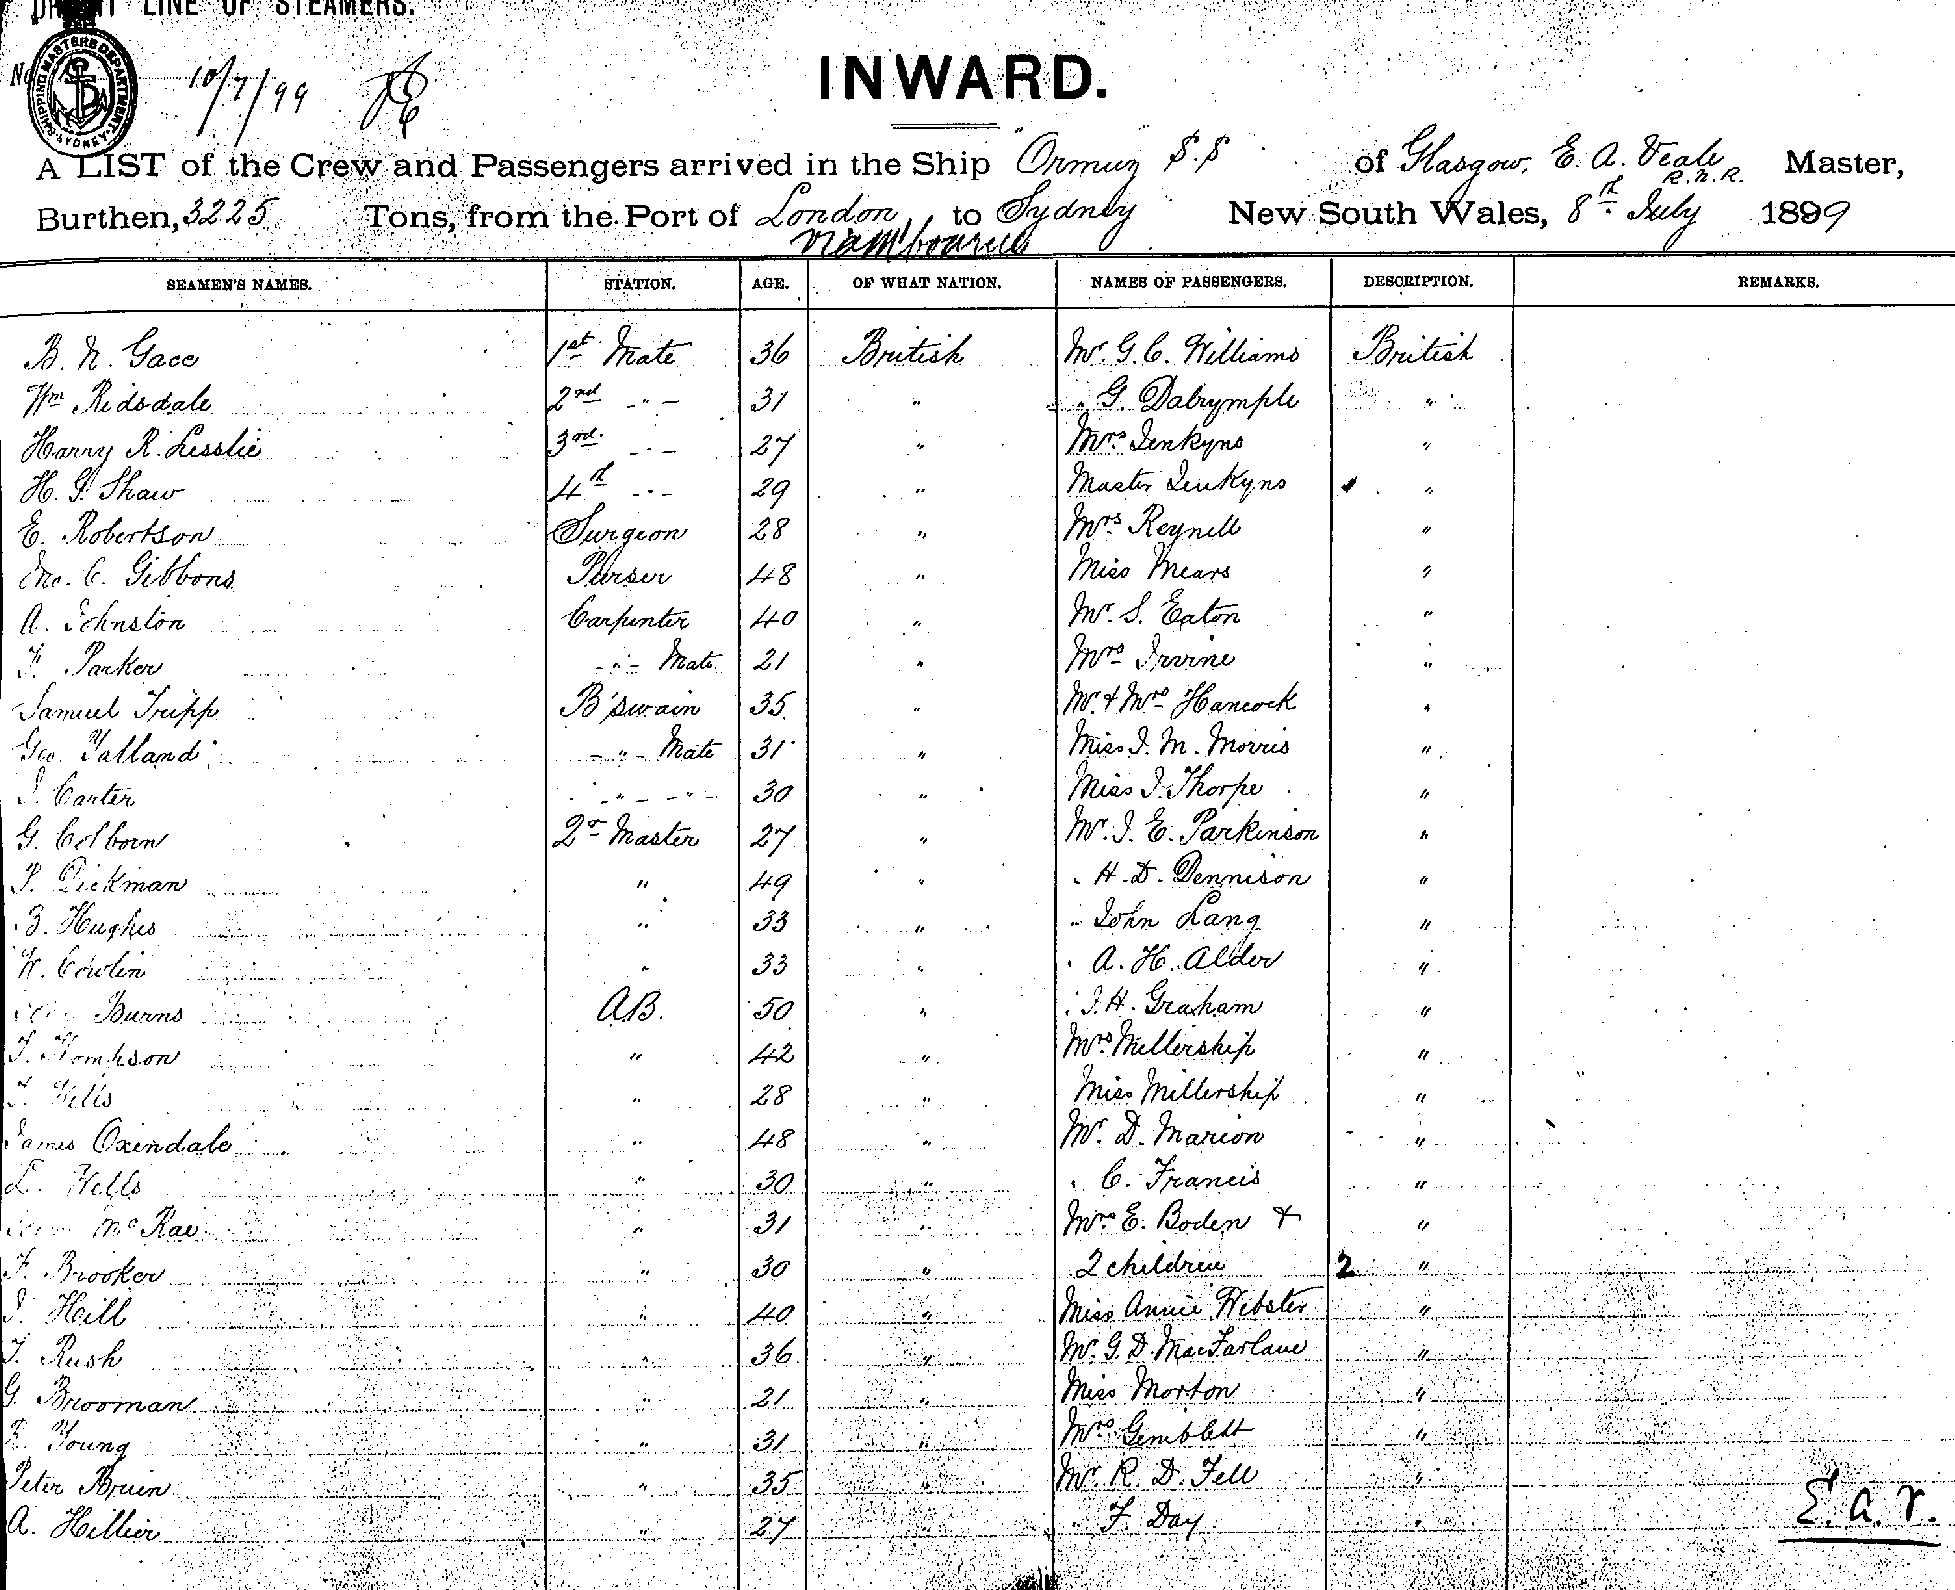 LINE OF STEAMERS.
SHIPPING MASTERS DEPARTMENT SYDNEY
No
10/7/99
INWARD.
A LIST of the Crew and Passengers arrived in the Ship "Ormuz" S.S of Glasgow, E. A. Veale R.N.R. Master,
Burthen, 3225 Tons, from the Port of London, to Sydney New South Wales, 8th July 1899
SEAMEN'S NAMES. STATION. AGE. OF WHAT NATION. NAMES OF PASSENGERS. DESCRIPTION. REMARKS.
B. N. Gace 1st Mate 36 British Mr. G. C. Williams British
Wm Ridsdale 2nd -"- 31 " " G. Dalrymple "
Harry R. Lesslie 3rd -"- 27 " Mrs Jenkyns "
H. G. Shaw 4th -"- 29 " Master Jenkyns "
E. Robertson Surgeon 28 " Mrs Reynell "
Jno. C. Gibbons Purser 48 " Miss Mears "
A. Johnston Carpenter 40 " Mr. S. Eaton "
F. Parker -"- Mate 21 " Mrs Irvine "
Samuel Tripp B'swain 35 " Mr. & Mrs Hancock "
Geo. Yalland -"- Mate 31 " Miss J. M. Morris "
J. Carter -"- -"- 30 " Miss J. Thorpe "
G. Colborn 2r Master 27 " Mr. J. E. Parkinson "
P. Dickman " 49 " " H. D. Dennison "
B. Hughes " 33 " " John Lang "
W. Cowlin " 33 " " A. H. Alder "
Burns A.B. 50 " " J. H. Graham "
T. Tompson " 42 " Mrs Millership "
Wells " 28 " Miss Millership "
James Oxendale " 48 " Mr. D. Marion "
L. Wells " 30 " " C. Francis "
McRae " 31 " Mrs E. Boden & "
F. Brooker " 30 " 2 children 2 "
J. Hill " 40 " Miss Annie Webster "
T. Rush " 36 " Mr. G. D. MacFarlane "
G. Brooman " 21 " Miss Morton "
Young " 31 " Mrs Gemblett "
Peter Bruin " 35 " Mr. R. D. Fell "
A. Hillier " 27 " " F. Day "
E.A.V.